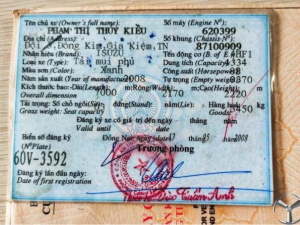 Tên chủ xe (Owner's full name): Số máy (Engine Nº)
PHẠM THỊ THÚY KIỀU 620399
Địa chỉ (Address) Số khung (Chassis Nº):
Đội 5.Đông Kim,Gia Kiệm,TN 87100909
Nhãn hiệu (Brand): ISUZU Tên động cơ (B. of E):
Loại xe (Type): Tải mui phủ Dung tích (Capacity): 4334
Màu sơn (Color): Xanh Công suất (Horsepower):
Năm sản xuất (Year of manufacture) 2008
Kích thước bao: Dài(Length): m;Rộng(Width): m;Cao(Height): m
Overall dimension 7000 2170 2220
Tải trọng: Số chỗ ngồi(Sit) đứng(Stand) nằm(Lie) Hàng hóa(Goods) kg
Gross weight: Seat capacity 3450
Đăng ký xe có giá trị đến ngày tháng năm
Valid until date
Biển số đăng ký Đồng Nai, ngày 13 05 2008
(Nº Plate) Trưởng phòng
60V-3592
Đăng ký lần đầu ngày:
Date of first registration
Đào Tuấn Anh